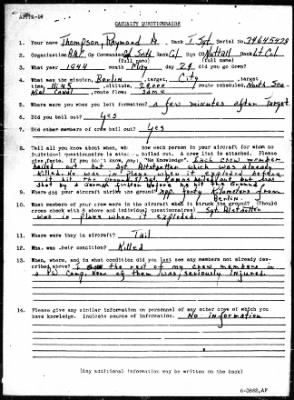 CASUALTY QUESTIONNAIRE
1. Your name Thompson, Raymond Rank T. Sgt. Serial No.
2. Organization Gp Commander Sqn Nuttall Rank Lt Col
(full name) (full name)
3. What year 1944 month May day 24 did you go down?
4. What was the mission, Berlin, target, City, target
time, 11:45, altitude, route scheduled, North Sea-
route flown same
5. Where were you when you left formation? a few minutes after target
6. Did you bail out? Yes
7. Did other members of crew bail out? Yes
8. Tell all you know about when, where, how each person in your aircraft for whom no
individual questionnaire is attached bailed out. A crew list is attached. Please
give facts. If you don't know, say: "No Knowledge". Each crew member
bailed out but Sgt which was already
killed. He was in plane when it exploded before
it hit the ground. Sgt bailed out but was
shot by a German before he hit the ground
9. Where did your aircraft strike the ground? app. forty kilometers from
Berlin.
10. What members of your crew were in the aircraft when it struck the ground? (Should
cross check with 8 above and individual questionnaires) Sgt.
was in plane when it exploded
11. Where were they in aircraft? Tail
12. What was their condition? Killed
13. When, where, and in what condition did you last see any members not already des-
cribed above? I saw the rest of my crew members in
a PW Camp. None of them was, seriously injured.
14. Please give any similar information on personnel of any other crew of which you
have knowledge. Indicate source of information. No information
(Any additional information may be written on the back)
6-3682,AF